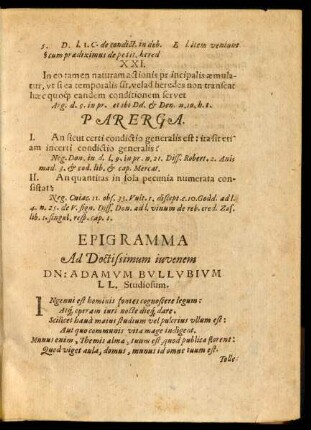 3. D. l. 1. C. de condict. in deb. E l item veniunt
§ cum prædiximus de petit. hered
XXI.
In eo tamen naturam actionis principalis æmula-
tur, vt si ea temporalis sit, vel ad heredes non transeat
hæc quoq; eandem conditionem servet
Arg. d. §. in pr. et ibi Dd. & Don. n. 10. h. t.
PARERGA.
I. An sicut certi condictio generalis est: ita sit eti-
am incerti condictio generalis?
Neg. Don. in d. l. 9. in pr. n. 21. Diss. Robert. 2. Ani
mad. 5. & eod. lib. & cap. Mercat.
II. An quantitas in sola pecunia numerata con-
sistat?
Neg. Cuiac. 11. obs. 35. Vult. 1. discept. c. 10. Godd. ad l.
4. n. 25. de V. sign. Diss. Don. ad l. vinum de reb. cred. Zas.
lib. 1. singul. resp. cap. 1.
EPIGRAMMA
Ad Doctissimum iuvenem
DN: ADAMVM BVLLVBIVM
LL. Studiosum.
INgenui est hominis fontes cognoscere legum:
Atq; operam iuri nocte dieq; dare.
Scilicet haud maius studium vel pulcrius ullum est:
Aut quo communis vita mage indigeat.
Munus enim, Themis alma, tuum est, quod publica florent:
Quod viget aula, domus, munus id omne tuum est.
Tolle